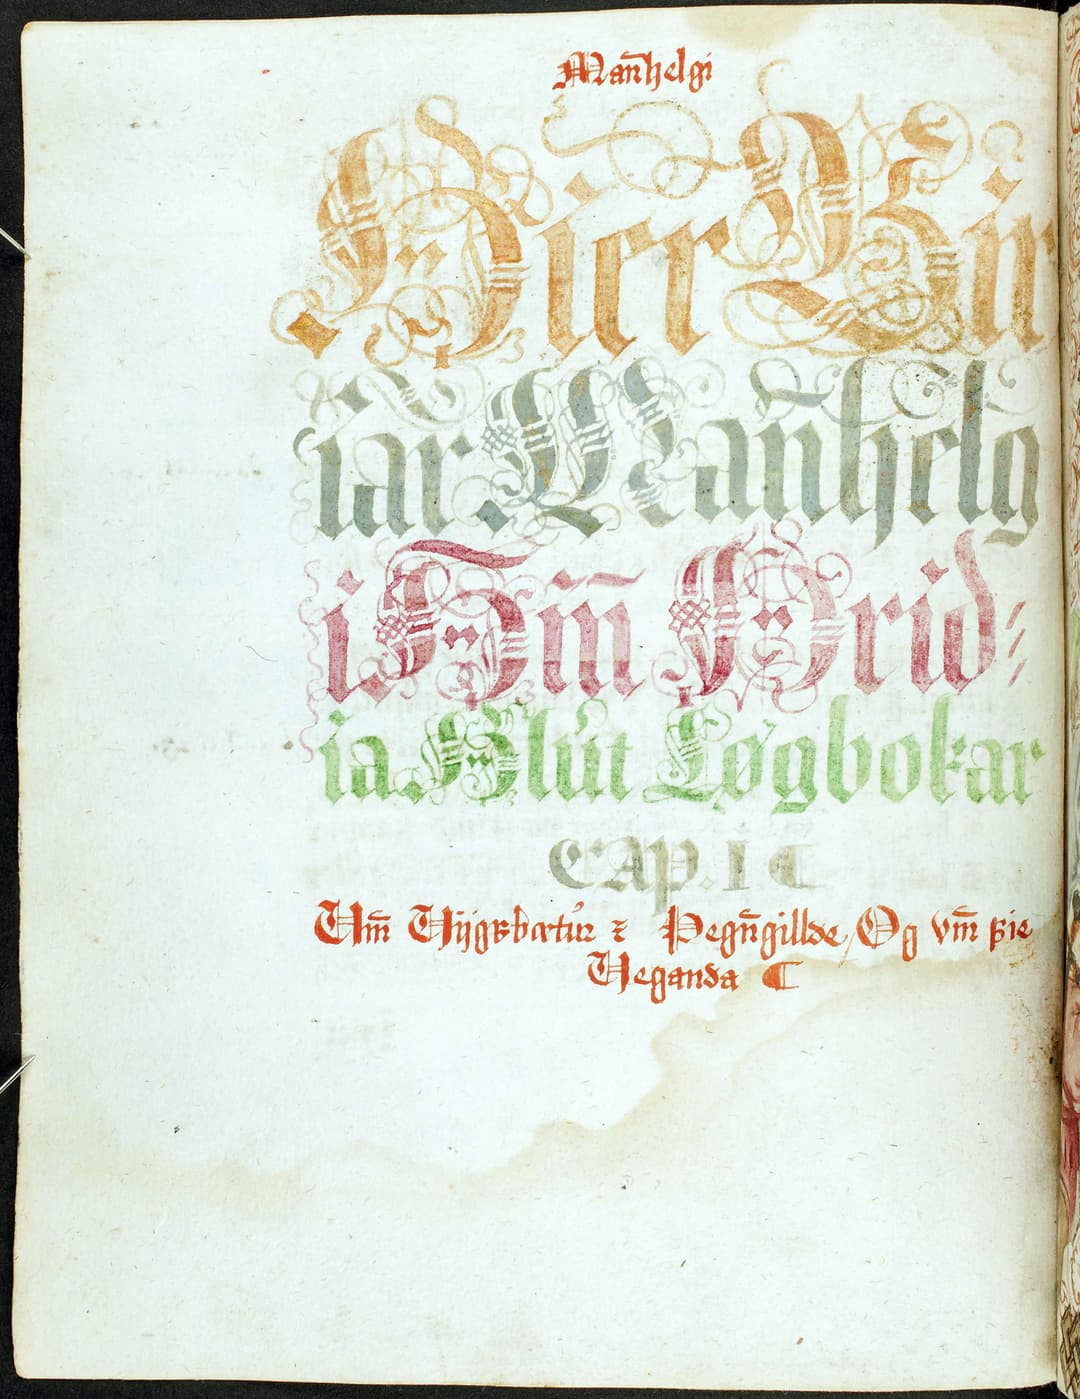 Man̄helgi
Hier Bir
iar Man̄helg
i Hin̄ Þrid⸗
ia Hlut Løgbokar
CAP. I ¶
Um̄ Vijgsbœtur ꝛ Þegn̄gillde, Og vm̄ þie
Veganda ¶